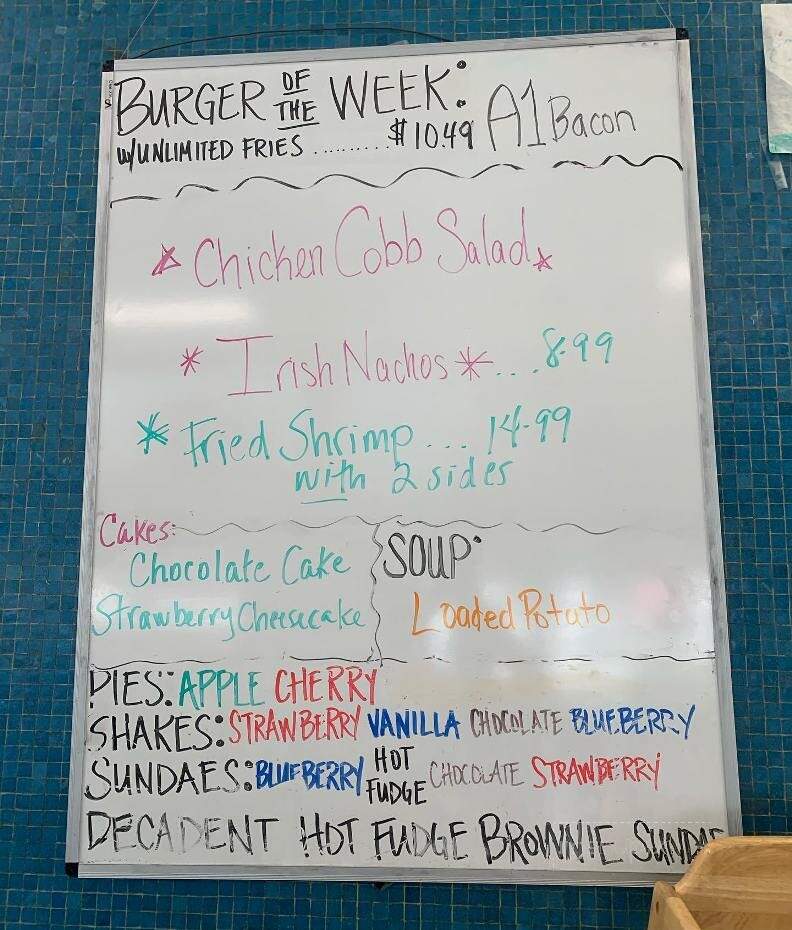 BURGER OF THE WEEK: A1 Bacon
W/UNLIMITED FRIES .......... $10.49
Chicken Cobb Salad
* Irish Nachos *... 8.99
* Fried Shrimp ... 14.99
with 2 sides
Cakes:
Chocolate Cake
Strawberry Cheesecake
SOUP:
Loaded Potato
PIES: APPLE CHERRY
SHAKES: STRAWBERRY VANILLA CHOCOLATE BLUEBERRY
SUNDAES: BLUEBERRY HOT FUDGE CHOCOLATE STRAWBERRY
DECADENT HOT FUDGE BROWNIE SUNDAE